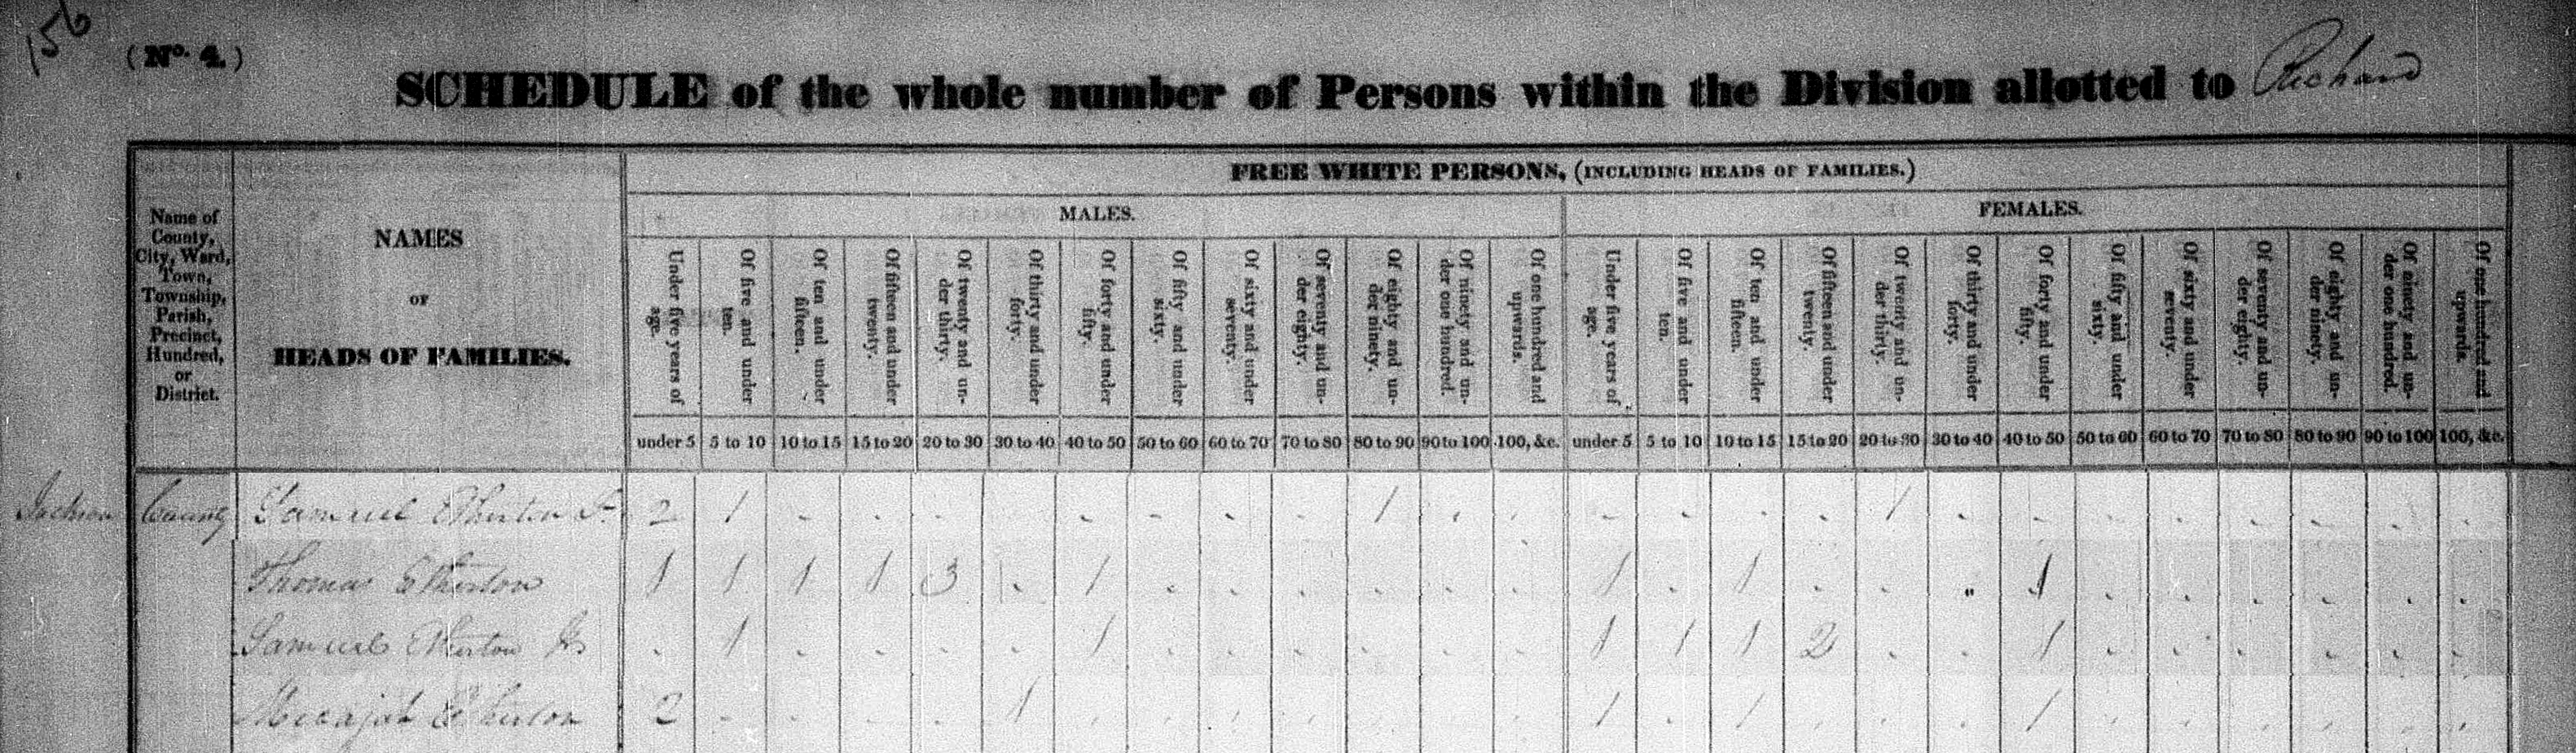 156
(No. 4.)
SCHEDULE of the whole number of Persons within the Division allotted to Richard
FREE WHITE PERSONS, (INCLUDING HEADS OF FAMILIES.)
MALES. FEMALES.
Name of
County,
City, Ward,
Town,
Township,
Parish,
Precinct,
Hundred,
or
District.
NAMES
OF
HEADS OF FAMILIES.
Under five years of
age.
Of five and under
ten.
Of ten and under
fifteen.
Of fifteen and under
twenty.
Of twenty and un-
der thirty.
Of thirty and under
forty.
Of forty and under
fifty.
Of fifty and under
sixty.
Of sixty and under
seventy.
Of seventy and un-
der eighty.
Of eighty and un-
der ninety.
Of ninety and un-
der one hundred.
Of one hundred and
upwards.
Under five years of
age.
Of five and under
ten.
Of ten and under
fifteen.
Of fifteen and under
twenty.
Of twenty and un-
der thirty.
Of thirty and under
forty.
Of forty and under
fifty.
Of fifty and under
sixty.
Of sixty and under
seventy.
Of seventy and un-
der eighty.
Of eighty and un-
der ninety.
Of ninety and un-
der one hundred.
Of one hundred and
upwards.
under 5 5 to 10 10 to 15 15 to 20 20 to 30 30 to 40 40 to 50 50 to 60 60 to 70 70 to 80 80 to 90 90 to 100 100, &c. under 5 5 to 10 10 to 15 15 to 20 20 to 30 30 to 40 40 to 50 50 to 60 60 to 70 70 to 80 80 to 90 90 to 100 100, &c.
Jackson County Samuel Etherton Sr. 2 1 1 1
Thomas Etherton 1 1 1 1 3 1 1 1 1
Samuel Etherton Jr 1 1 1 1 1 2 1
Micajah Etherton 2 1 1 1 1